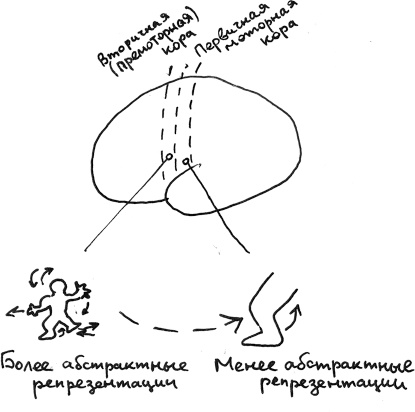 Вторичная
(Премоторная)
кора
Первичная
моторная
кора
Более абстрактные
репрезентации
Менее абстрактные
репрезентации